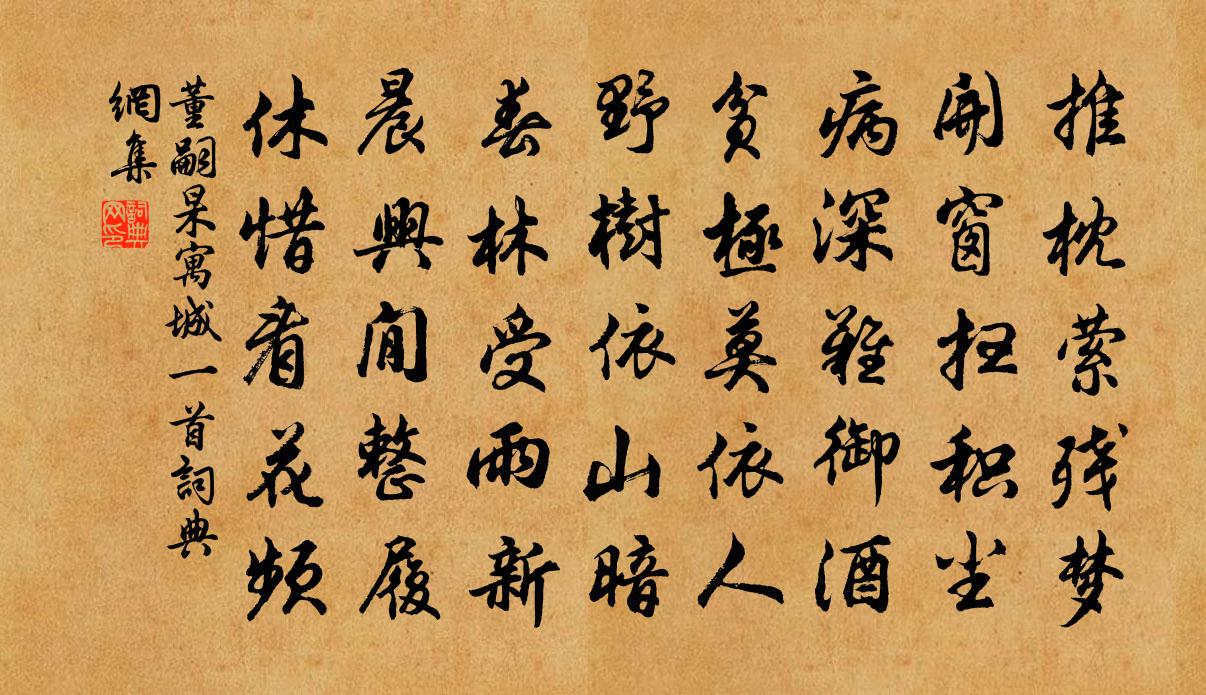 推枕萦残梦
開窗扫积尘
病深難御酒
貧極莫依人
野樹依山暗
春林受雨新
晨興閒整履
休惜看花頻
董嗣杲寓城一首詞典
網集
詞典
网印